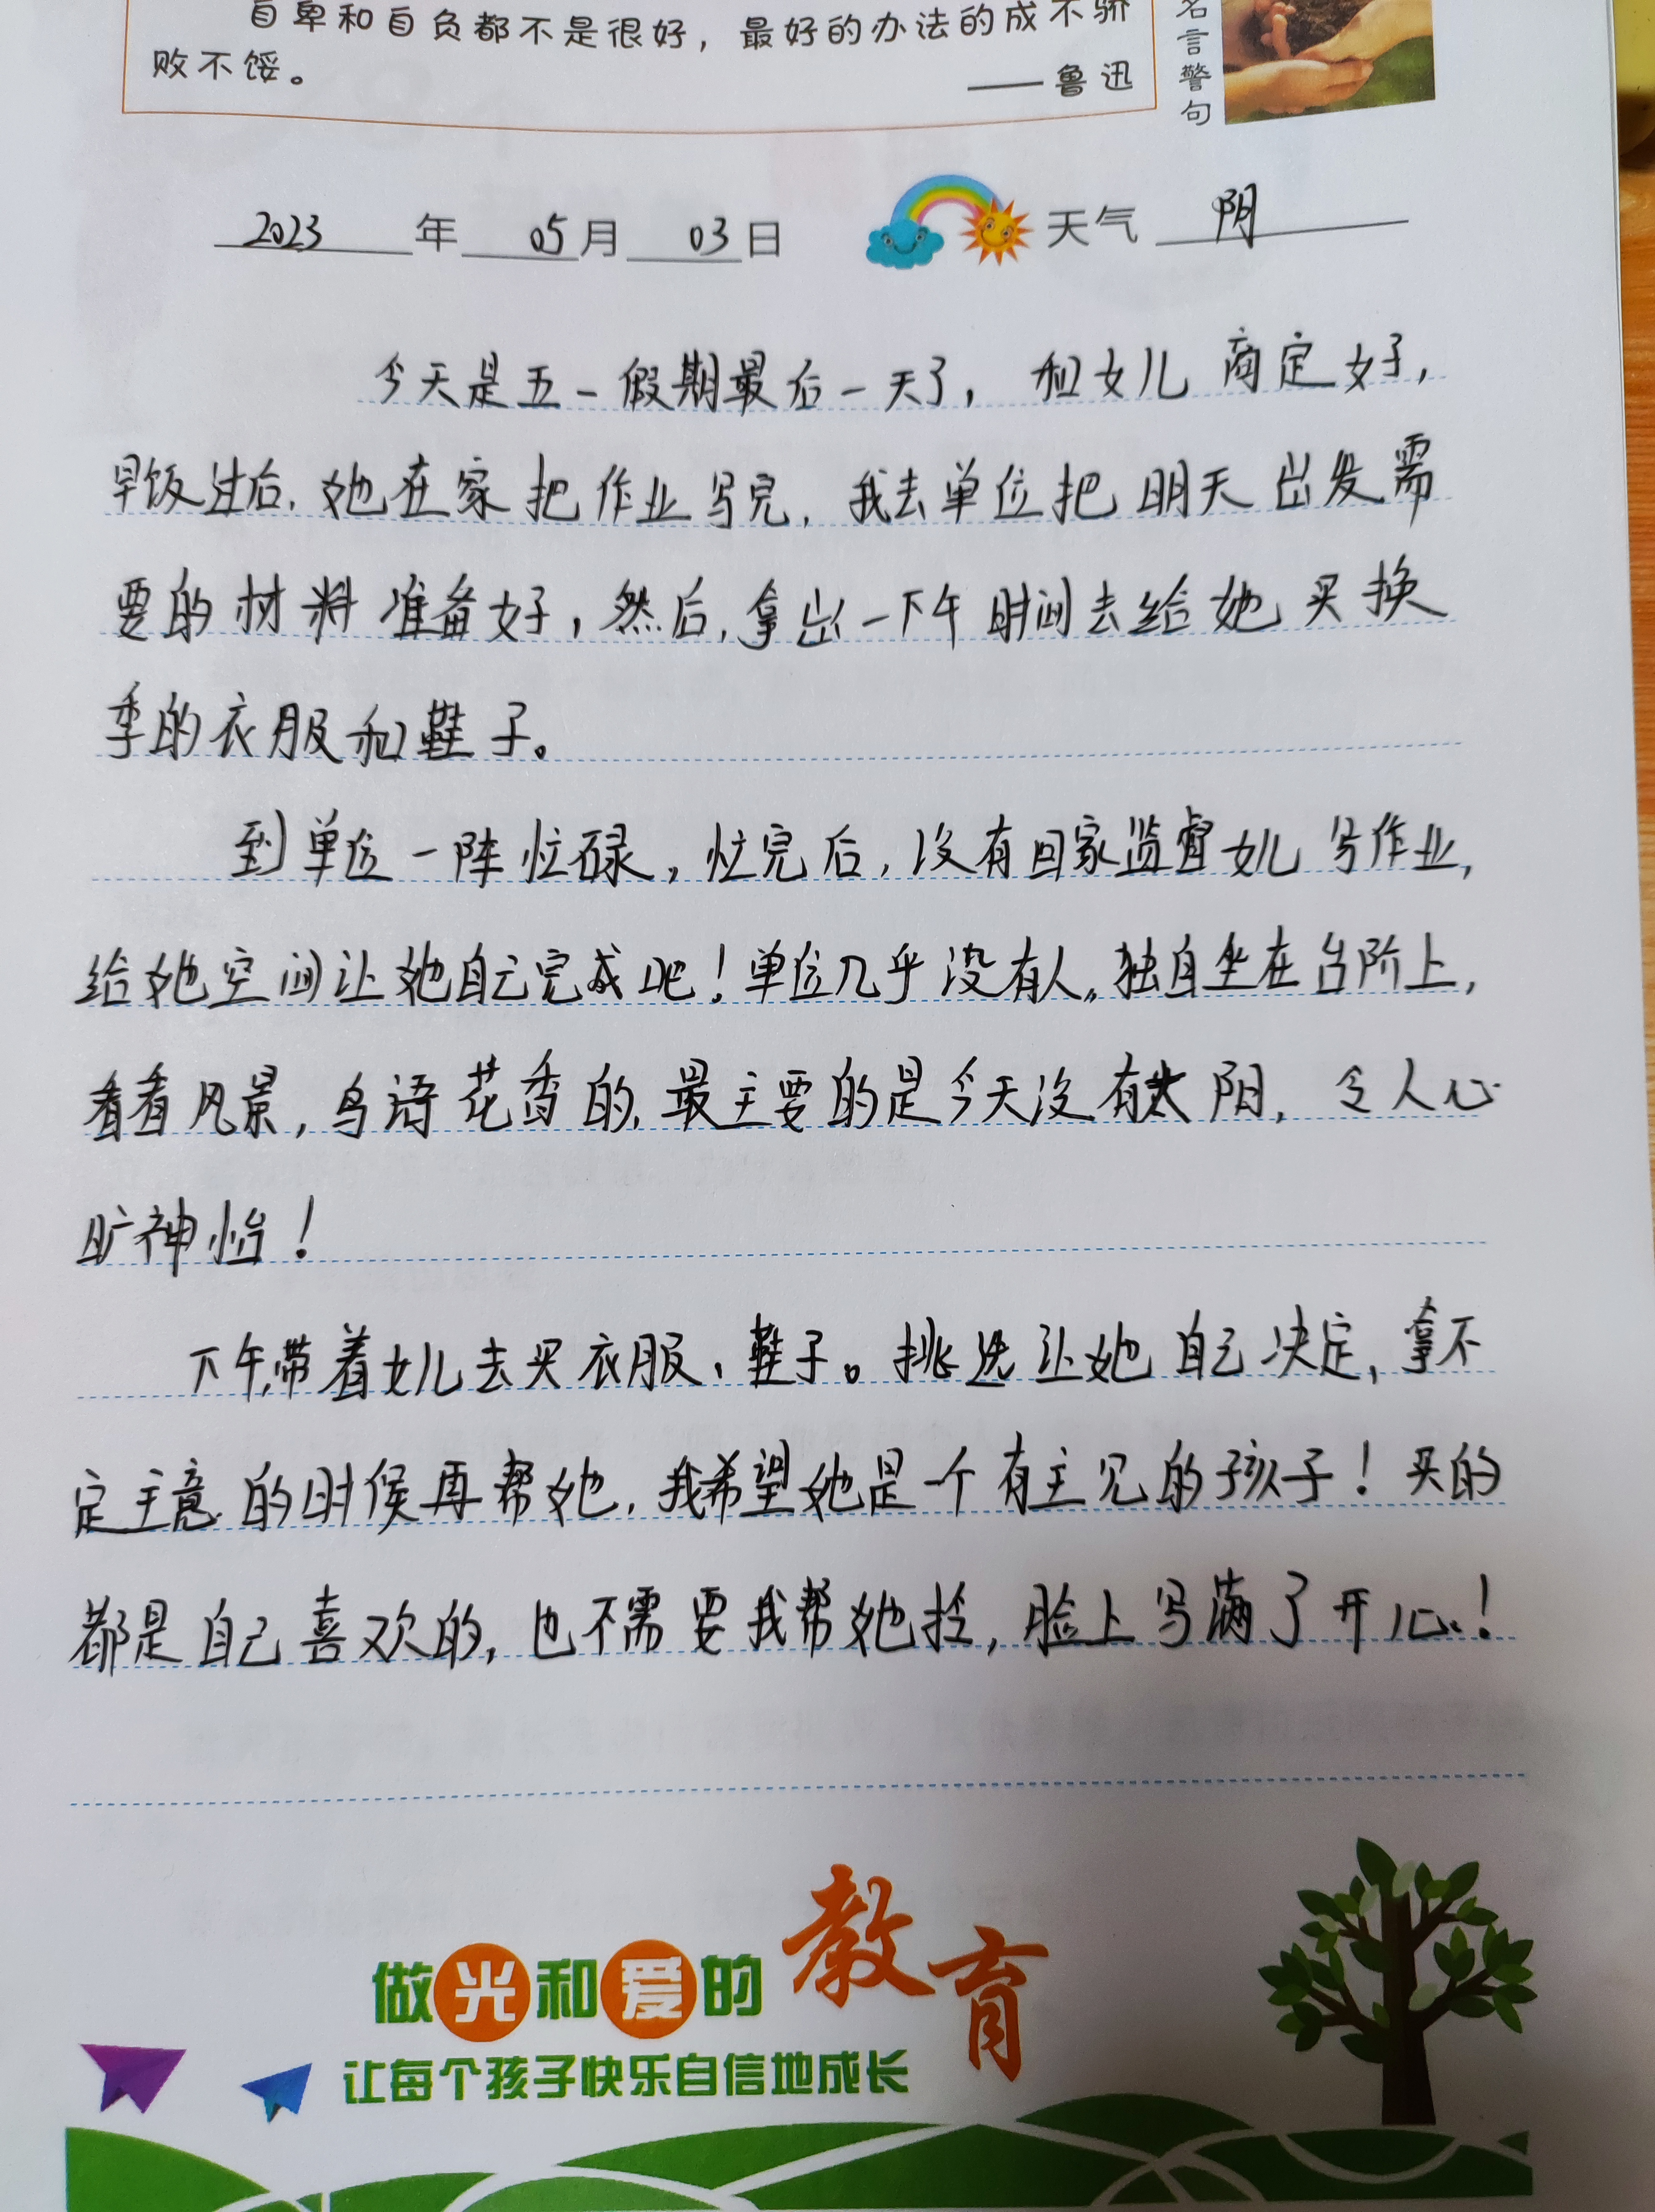 自卑和自负都不是很好，最好的办法的成不骄
败不馁。
——鲁迅
名言警句
2023年05月03日 天气 阴
今天是五一假期最后一天了，和女儿商定好，
早饭过后，她在家把作业写完，我去单位把明天出发需
要的材料准备好，然后，拿出一下午时间去给她买换
季的衣服和鞋子。
到单位一阵忙碌，忙完后，没有回家监督女儿写作业，
给她空间让她自己完成吧！单位几乎没有人，独自坐在台阶上，
看看风景，鸟语花香的，最主要的是今天没有太阳，令人心
旷神怡！
下午，带着女儿去买衣服、鞋子。挑选让她自己决定，拿不
定主意的时候再帮她，我希望她是一个有主见的孩子！买的
都是自己喜欢的，也不需要我帮她拎，脸上写满了开心！
做光和爱的教育
让每个孩子快乐自信地成长